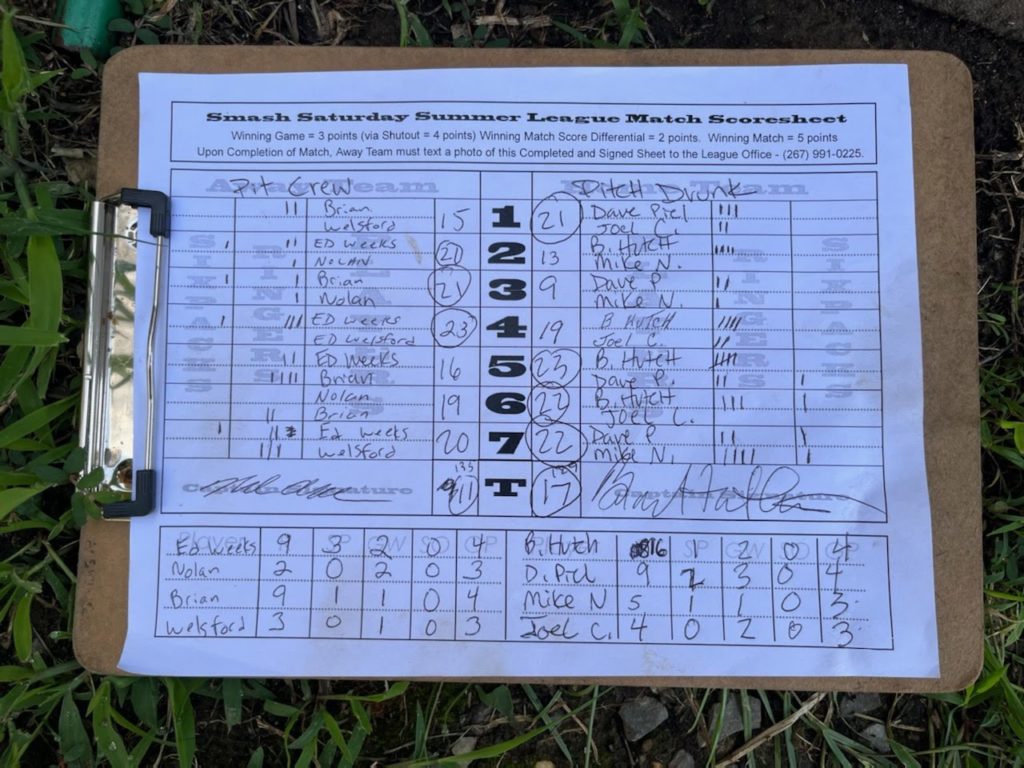 Smash Saturday Summer League Match Scoresheet
Winning Game = 3 points (via Shutout = 4 points) Winning Match Score Differential = 2 points. Winning Match = 5 points
Upon Completion of Match, Away Team must text a photo of this Completed and Signed Sheet to the League Office - (267) 991-0225.
Pit Crew Pitch Drunk
Brian 15 1 21 Dave Piel
Welsford Joel C.
ED Weeks 21 2 13 B. Hutch
NOLAN Mike N.
Brian 21 3 9 Dave P
Nolan Mike N.
ED Weeks 23 4 19 B HUTCH
ED Welsford Joel C.
ED Weeks 16 5 23 B. Hutch
Brian Dave P.
Nolan 19 6 22 B. Hutch
Brian Joel C.
Ed Weeks 20 7 22 Dave P
Welsford Mike N.
135
11 T 17
Captain Signature
Players SP GW SO GP
Ed Weeks 9 3 2 0 4 B. Hutch 16 1 2 0 4
Nolan 2 0 2 0 3 D. Piel 9 2 3 0 4
Brian 9 1 1 0 4 Mike N 5 1 1 0 3
Welsford 3 0 1 0 3 Joel C. 4 0 2 0 3